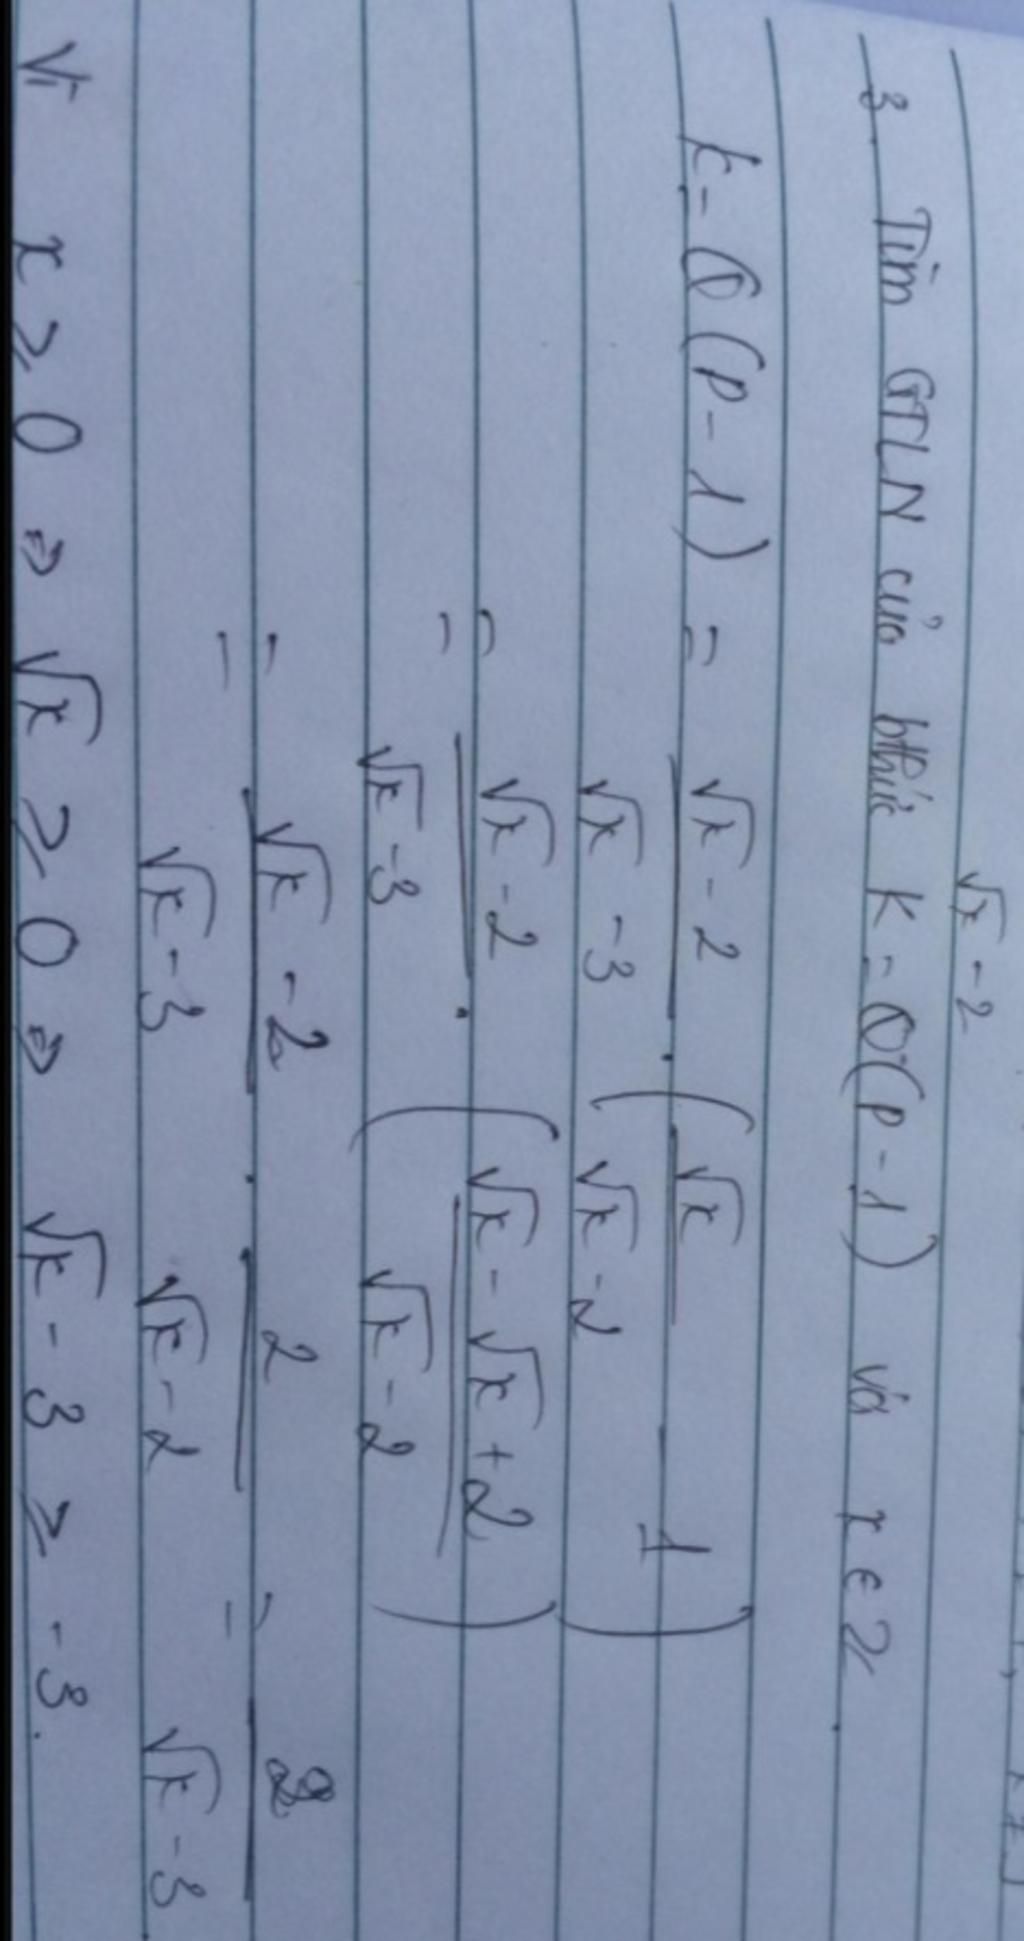 √x - 2
3. Tìm GTLN của bthức K = Q(P - 1) và x ∈ Z
K = Q(P - 1) = √x - 2 / √x - 3 . ( √x / √x - 2 - 1 )
= √x - 2 / √x - 3 . ( √x - √x + 2 / √x - 2 )
= √x - 2 / √x - 3 . 2 / √x - 2 = 2 / √x - 3
Vì x ≥ 0 ⇒ √x ≥ 0 ⇒ √x - 3 ≥ -3.